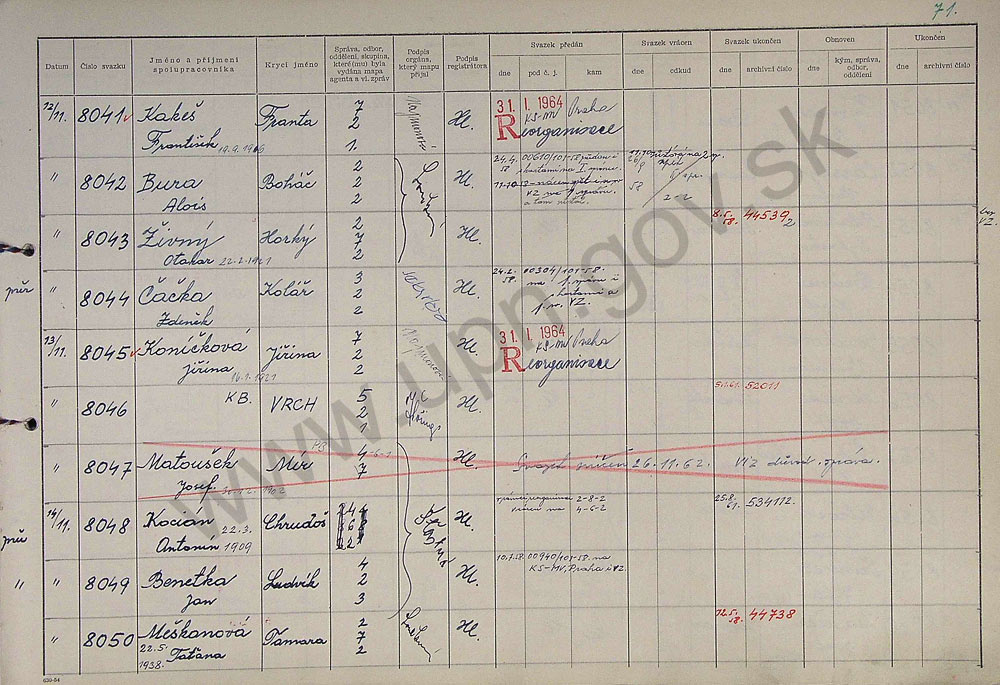 71.
Datum
Číslo svazku
Jméno a příjmení spolupracovníka
Krycí jméno
Správa, odbor, oddělení, skupina, které(mu) byla vydána mapa agenta a vl. zpráv
Podpis orgána, který mapu přijal
Podpis registrátora
Svazek předán
dne
pod č. j.
kam
Svazek vrácen
dne
odkud
Svazek ukončen
dne
archivní číslo
Obnoven
dne
kým, správa, odbor, oddělení
Ukončen
dne
archivní číslo
12/11. 8041 Kakeš Franta 7 2 1. Hl. 31. I. 1964 KS-MV Praha
František 19.9.1906 Reorganisace
" 8042 Bura Boháč 2 2 2 Hl. 24.4. 58 00610/101-58
Alois
" 8043 Živný Horký 2 7 2 Hl. 8.5. 58. 44539
Otakar 22.2.1921
" 8044 Čáčka Kolář 3 2 2 Hl. 24.2. 58. 00304/101-58.
Zdeněk
13/11. 8045 Koníčková Jiřina 7 2 2 Hl. 31. I. 1964 KS-MV Praha
Jiřina 16.1.1921 Reorganisace
" 8046 KB. VRCH 5 2 1 Hl. 52011
" 8047 Matoušek Mír 4 7 Hl. Svazek zničen 26.11.62. Viz důvod. zpráva.
Josef
14/11. 8048 Kocián Chrudoš Hl. 2-8-2 4-6-2 25.8. 61. 534112.
Antonín 22.3. 1909
" 8049 Benetka Ludvík 4 2 3 Hl. 10.7.58. 00940/101-58. na KS-MV, Praha
Jan
" 8050 Meškanová Tamara 2 7 2 Hl. 12.5. 58. 44738
22.5. 1938. Taťána
www.upn.gov.sk